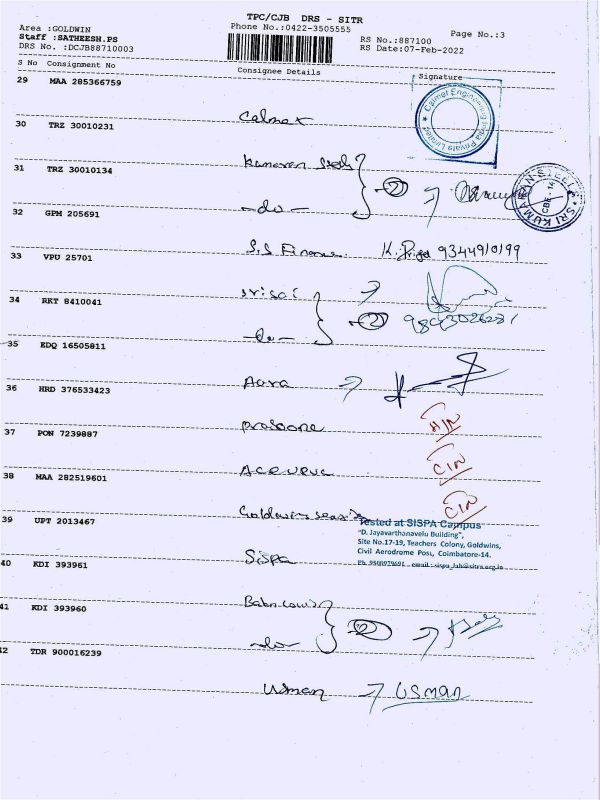 TPC/CJB DRS - SITR
Area :GOLDWIN
Phone No.:0422-3505555
Page No.:3
Staff :SATHEESH.PS
RS No.:887100
DRS No. :DCJB88710003
RS Date:07-Feb-2022
S No Consignment No
Consignee Details
Signature
29 MAA 285366759
Calmet Engineering India Private Limited
Calmax
30 TRZ 30010231
31 TRZ 30010134
2
-do-
SRI KUMARAN STEELS
CBE - 14
32 GPM 205691
S.S Finance K. Priya 9344910199
33 VPU 25701
srisai
34 RKT 8410041
2
-do-
35 EDQ 16505811
Aara
36 HRD 376533423
37 PON 7239887
CIN
38 MAA 282519601
CIN
39 UPT 2013467
Tested at SISPA Campus
"D. Jayavarthanavelu Building",
Site No.17-19, Teachers Colony, Goldwins,
Civil Aerodrome Post, Coimbatore-14.
Sispa
40 KDI 393961
41 KDI 393960
2
-do-
42 TDR 900016239
Usman → USMAN